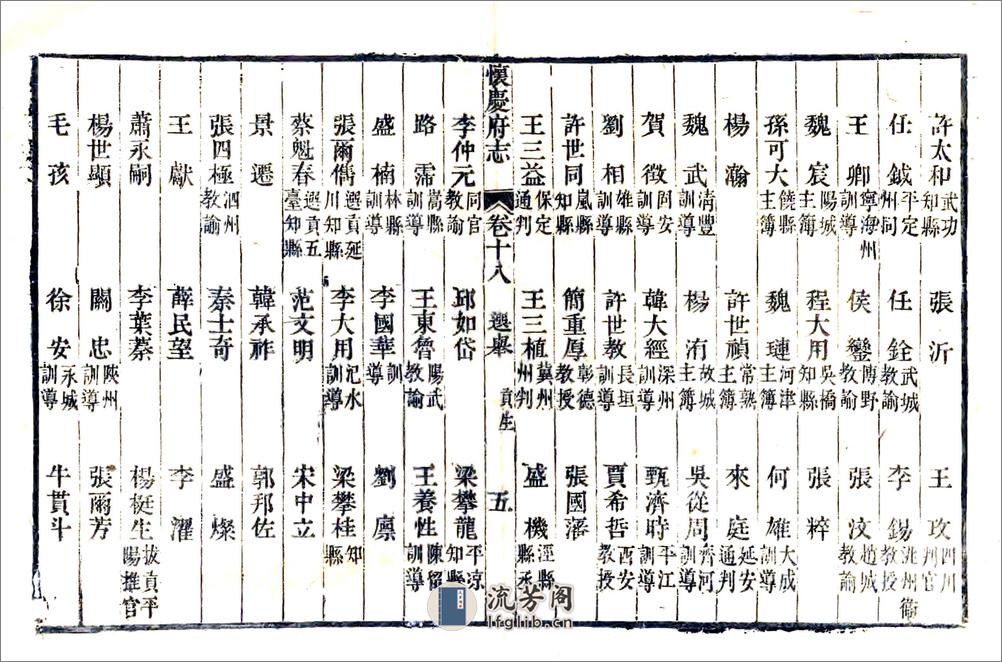 許太和 武功知縣 張沂 王攻 四川判官
任鉞 平定州同 任銓 武城教諭 李錫 洮州衛教授
王卿 寧海州訓導 侯鑾 博野教諭 張汶 趙城教諭
魏宸 陽城主簿 程大用 吳橋知縣 張粹
孫可大 饒縣主簿 魏璉 河津主簿 何雄 大成訓導
楊瀚 許世禎 常熟主簿 來庭 延安通判
魏武 清豐訓導 楊洧 故城主簿 吳從周 齊河訓導
賀徵 固安訓導 韓大經 深州訓導 甄濟時 平江訓導
劉相 雄縣訓導 許世教 長垣訓導 賈希哲 西安教授
許世同 嵐縣知縣 簡重厚 彰德教授 張國藩
王三益 保定通判 王三植 冀州州判 盛機 涇縣縣丞
懷慶府志 卷十八 選舉 貢生 五
李仲元 同官教諭 邱如岱 梁攀龍 平涼知縣
路霈 嵩縣訓導 王東魯 陽武教諭 王養性 陳留訓導
盛楠 林縣訓導 李國華 訓導 劉廪
張爾儁 選貢延川知縣 李大用 汜水訓導 梁攀桂 知縣
蔡魁春 選貢五臺知縣 范文明 宋中立
景遷 韓承祚 郭邦佐
張四極 泗州教諭 秦士奇 盛燦
王獻 薛民望 李濯
蕭永嗣 李葉蓁 楊梃生 拔貢平陽推官
楊世顯 關忠 陝州訓導 張爾芳
毛孩 徐安 永城訓導 牛貫斗
流芳阁
lfglib.cn